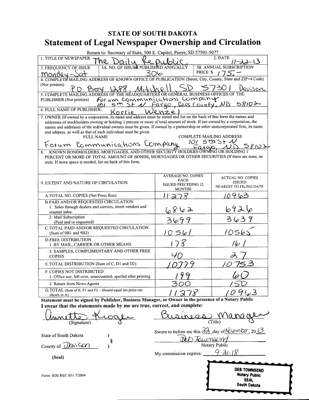 STATE OF SOUTH DAKOTA
Statement of Legal Newspaper Ownership and Circulation
Return to: Secretary of State, 500 E. Capitol, Pierre, SD 57501-5077
1. TITLE OF NEWSPAPER The Daily Republic
2. DATE 11-22-13
3. FREQUENCY OF ISSUE Monday-Sat
3A. NO. OF ISSUES PUBLISHED ANNUALLY 306
3B. ANNUAL SUBSCRIPTION PRICE $ 175.-
4. COMPLETE MAILING ADDRESS OF KNOWN OFFICE OF PUBLICATION (Street, City, County, State and ZIP+4 Code) (Not printers)
PO Box 1288 Mitchell SD 57301 Davison
5. COMPLETE MAILING ADDRESS OF THE HEADQUARTERS OR GENERAL BUSINESS OFFICES OF THE
PUBLISHER (Not printer) Forum Communications Company
101 5th St N Fargo, Cass County ND 58102
6. FULL NAME OF PUBLISHER: Korrie Wenzel
7. OWNER (If owned by a corporation, its name and address must be stated and list on the back of this form the names and
addresses of stockholders owning or holding 1 percent or more of total amount of stock. If not owned by a corporation, the
names and addresses of the individual owners must be given. If owned by a partnership or other unincorporated firm, its name
and address, as well as that of each individual must be given.
FULL NAME
COMPLETE MAILING ADDRESS
Forum Communications Company 101 5th St N
Fargo ND 58102
8. KNOWN BONDHOLDERS, MORTGAGES, AND OTHER SECURITY HOLDERS OWNING OR HOLDING 1
PERCENT OR MORE OF TOTAL AMOUNT OF BONDS, MORTGAGES OR OTHER SECURITIES (If there are none, so
state. If more space is needed, list on back of this form.
9. EXTENT AND NATURE OF CIRCULATION
AVERAGE NO. COPIES EACH ISSUED PRECEDING 12 MONTH
ACTUAL NO. COPIES ISSUED NEAREST TO FILING DATE
A. TOTAL NO. COPIES (Net Press Run) 11278 10963
B. PAID AND/OR REQUESTED CIRCULATION
1. Sales through dealers and carriers, street vendors and counter sales. 6862 6926
2. Mail Subscription (Paid and or requested) 3699 3639
C. TOTAL PAID AND/OR REQUESTED CIRCULATION (Sum of 9B1 and 9B2) 10561 10565
D. FREE DISTRIBUTION
1. BY MAIL, CARRIER OR OTHER MEANS 178 161
2. SAMPLES, COMPLIMENTARY AND OTHER FREE COPIES 40 27
E. TOTAL DISTRIBUTION (Sum of C, D1 and D2) 10779 10753
F. COPIES NOT DISTRIBUTED
1. Office use, left over, unaccounted, spoiled after printing 199 60
2. Return from News Agents 300 150
G. TOTAL (Sum of E, F1 and F2 - Should equal net press run shown in A) 11278 10963
Statement must be signed by Publisher, Business Manager, or Owner in the presence of a Notary Public
I swear that the statements made by me are true, correct, and complete:
Annette Kroger Business Manager
(Signature) (Title)
State of South Dakota )
County of Davison )
(Seal)
Sworn to before me this 22 day of November, 2013
Deb Townsend
Notary Public
My commission expires: 9-21-18
Form: SOS REC 051 7/2004
DEB TOWNSEND
Notary Public
SEAL
South Dakota